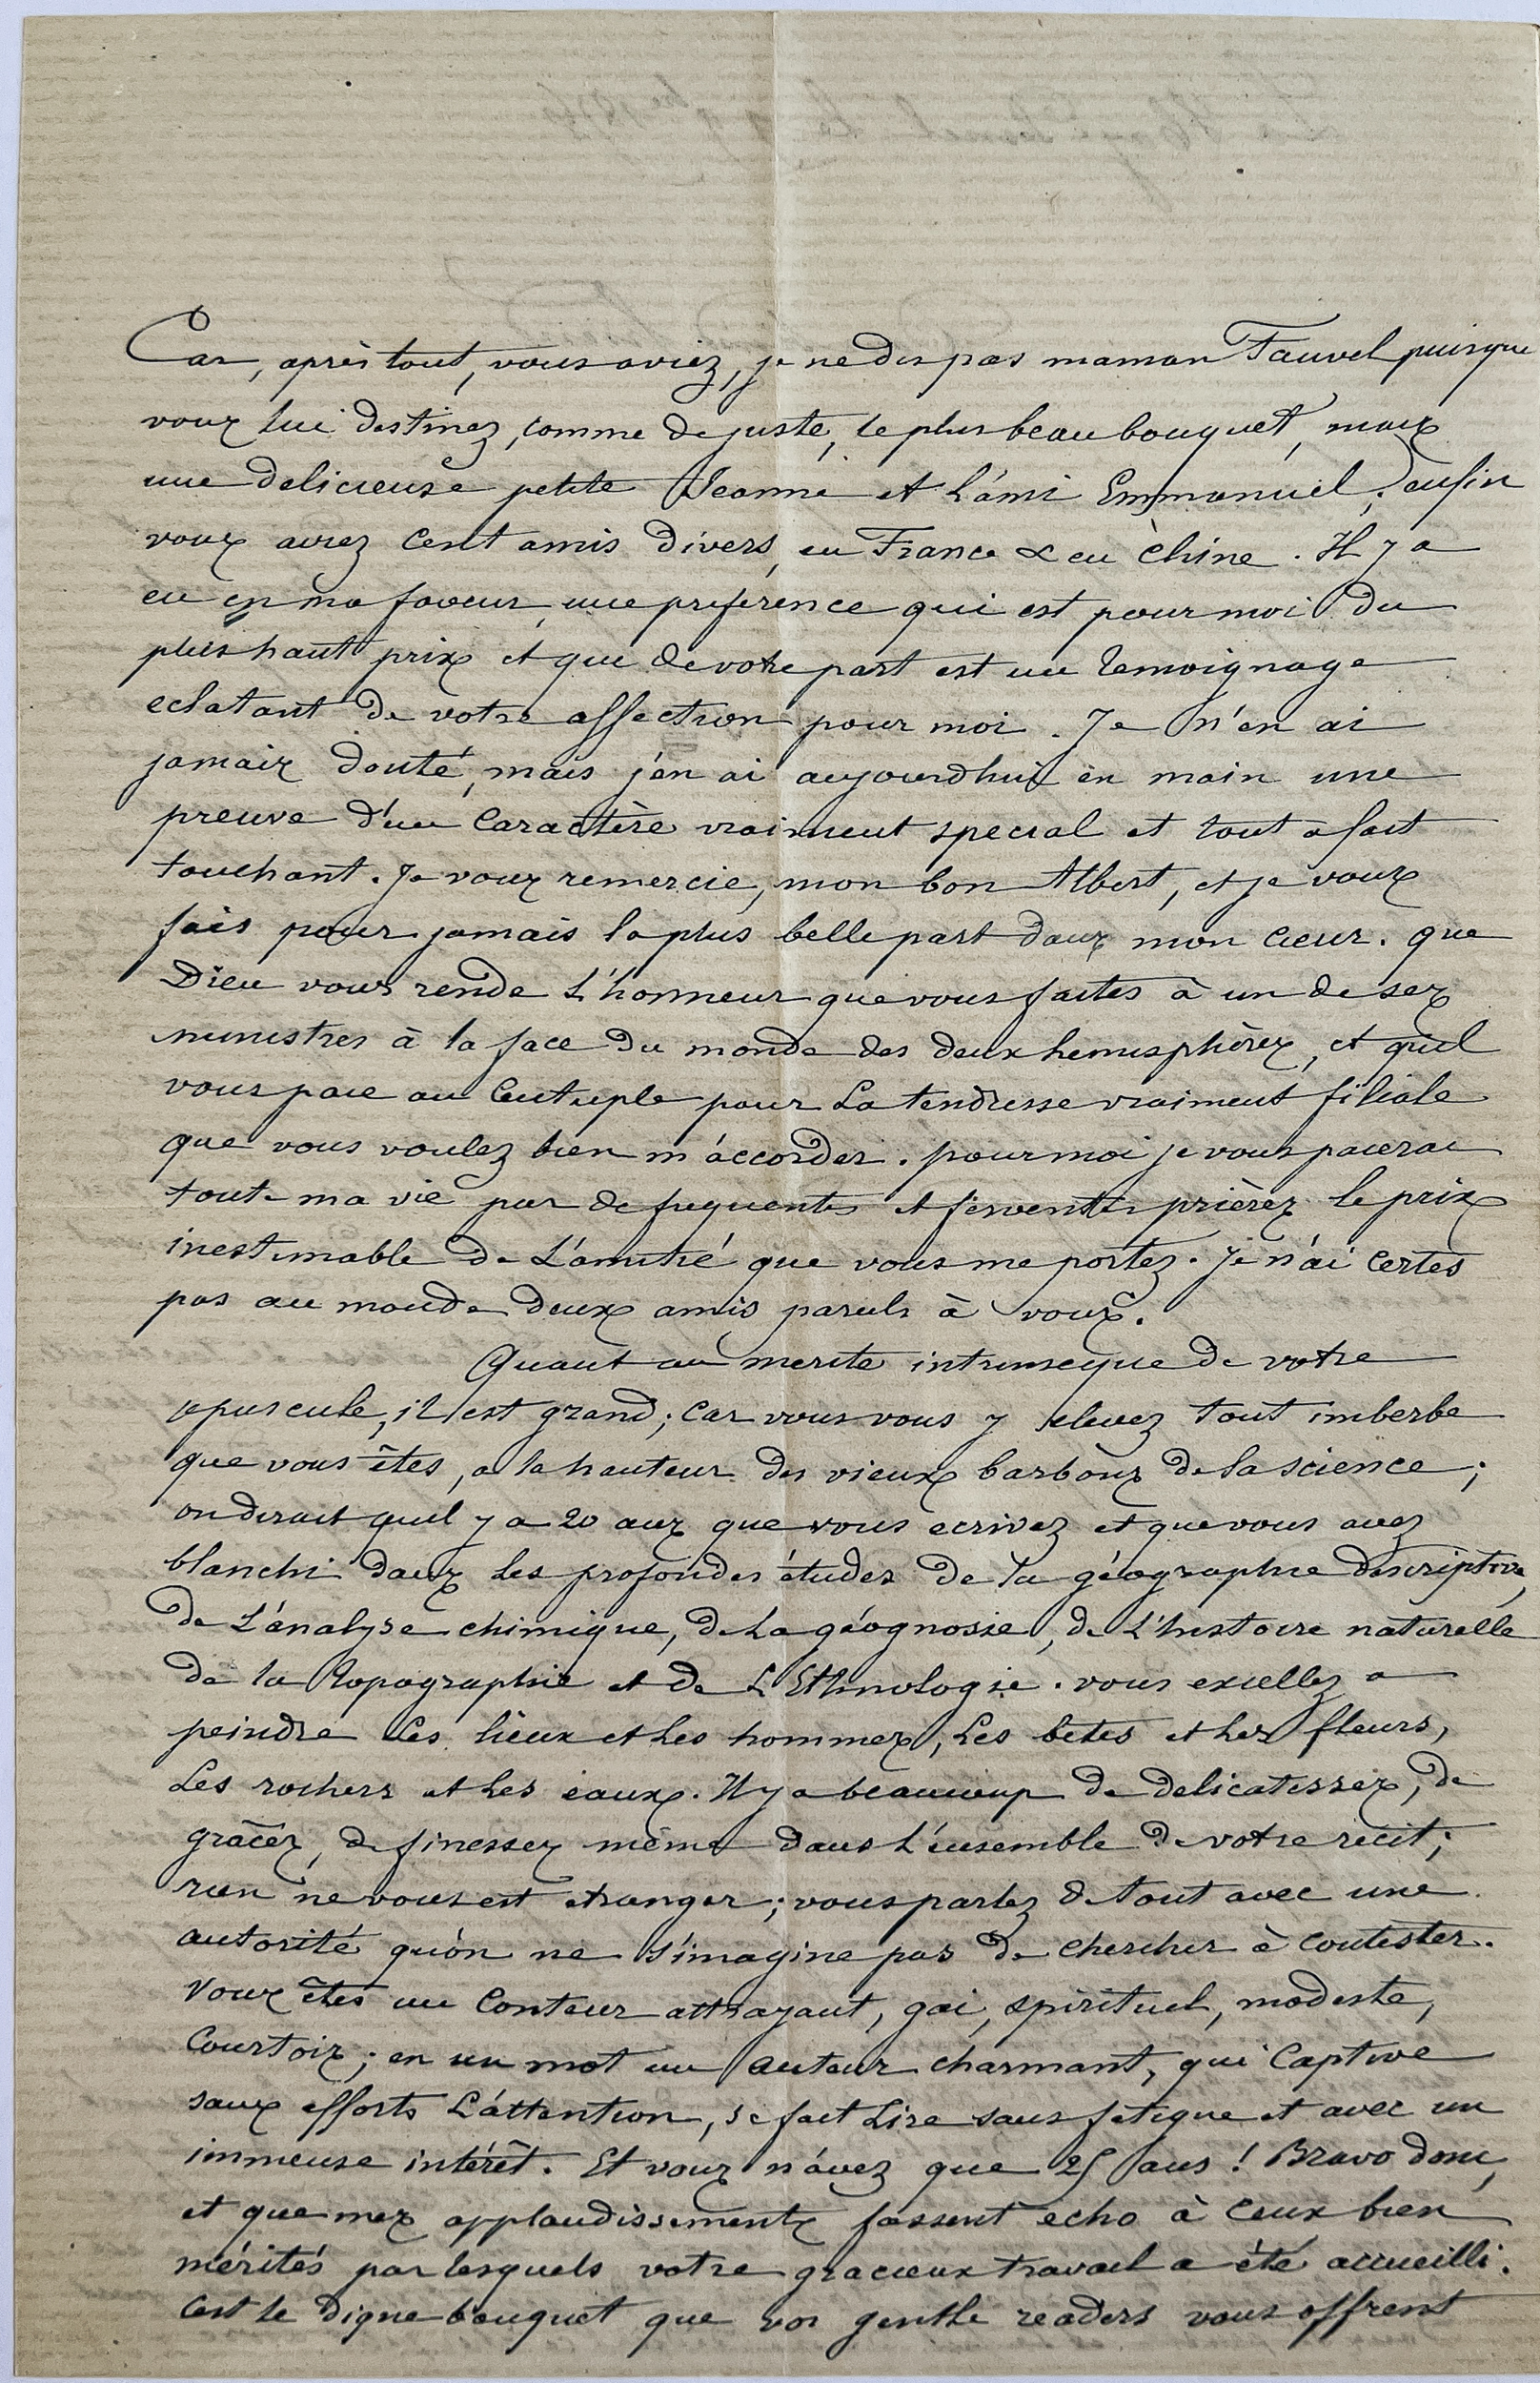 Car, après tout, vous aviez, je ne dis pas maman Fauvel puisque
vous lui destinez, comme de juste, le plus beau bouquet, mais
une delicieuse petite Jeanne et l'ami Emmanuel; enfin
vous aviez cent amis divers, en France & en Chine. Il y a
eu en ma faveur une preference qui est pour moi du
plus haut prix et qui de votre part est un temoignage
eclatant de votre affection pour moi. Je n'en ai
jamais douté, mais j'en ai aujourdhui en main une
preuve d'un caractère vraiment special et tout a fait
touchant. Je vous remercie, mon bon Albert, et je vous
fais pour jamais la plus belle part dans mon cœur. que
Dieu vous rende l'honneur que vous faites à un de ses
ministres à la face du monde des deux hemisphères, et qu'il
vous paie au centuple pour la tendresse vraiment filiale
que vous voulez bien m'accorder. pour moi je vous paierai
toute ma vie par de frequentes et ferventes prières le prix
inestimable de l'amitié que vous me portez. Je n'ai certes
pas au monde deux amis pareils à vous.
Quant au merite intrinseque de votre
opuscule, il est grand; car vous vous y elevez tout imberbe
que vous êtes, a la hauteur des vieux barbons de la science;
on dirait qu'il y a 20 ans que vous ecrivez et que vous avez
blanchi dans les profondes études de la géographie descriptive,
de l'analyse chimique, de la géognosie, de l'histoire naturelle
de la topographie et de l'Ethnologie. vous excellez a
peindre les lieux et les hommes, les betes et les fleurs,
les rochers et les eaux. Il y a beaucoup de delicatesses, de
grâces, de finesses même dans l'ensemble de votre récit;
rien ne vous est etranger; vous parlez de tout avec une
autorité qu'on ne s'imagine pas de chercher à contester.
Vous êtes un conteur attrayant, gai, spirituel, modeste,
courtois; en un mot un auteur charmant, qui captive
sans efforts l'attention, se fait lire sans fatigue et avec un
immense intérêt. Et vous n'avez que 25 ans! Bravo donc,
et que mes applaudissements fassent echo à ceux bien
mérités par lesquels votre gracieux travail a été accueilli.
C'est le digne bouquet que vos gentle readers vous offrent